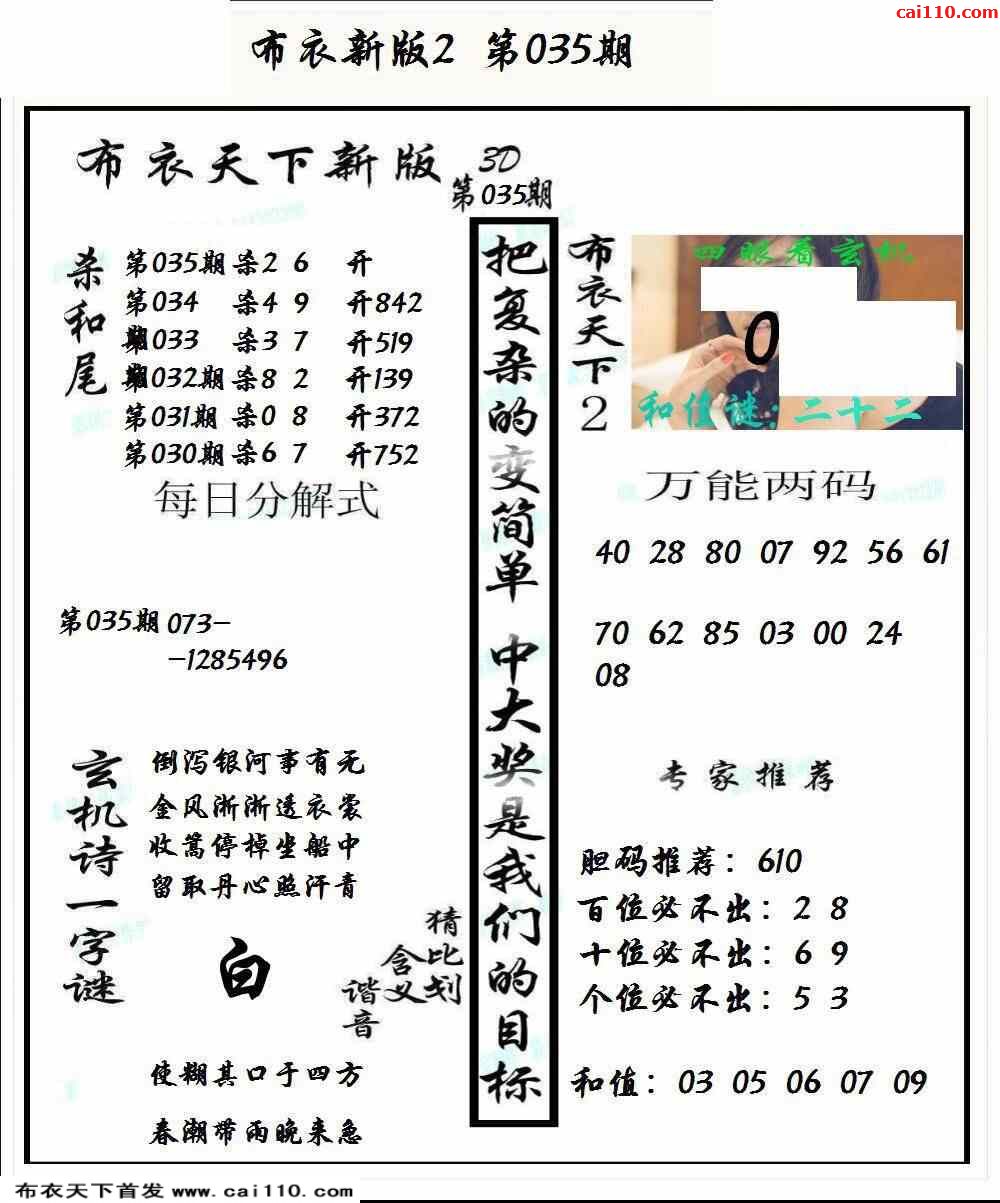 cai110.com
布衣新版2 第035期
布衣天下新版 3D
第035期
杀和尾
第035期杀2 6 开
第034 杀4 9 开842
期033 杀3 7 开519
期032期杀8 2 开139
第031期杀0 8 开372
第030期杀6 7 开752
每日分解式
第035期 073-
-1285496
玄机诗一字谜
倒泻银河事有无
金风浙浙透衣裳
收篙停棹坐船中
留取丹心照汗青
白
猜比划
含义
谐音
使糊其口于四方
春潮带雨晚来急
把复杂的变简单 中大奖是我们的目标
布衣天下2
四眼看玄机
0
和值谜:二十二
万能两码
40 28 80 07 92 56 61
70 62 85 03 00 24
08
专家推荐
胆码推荐：610
百位必不出：2 8
十位必不出：6 9
个位必不出：5 3
和值：03 05 06 07 09
布衣天下首发 www.cai110.com